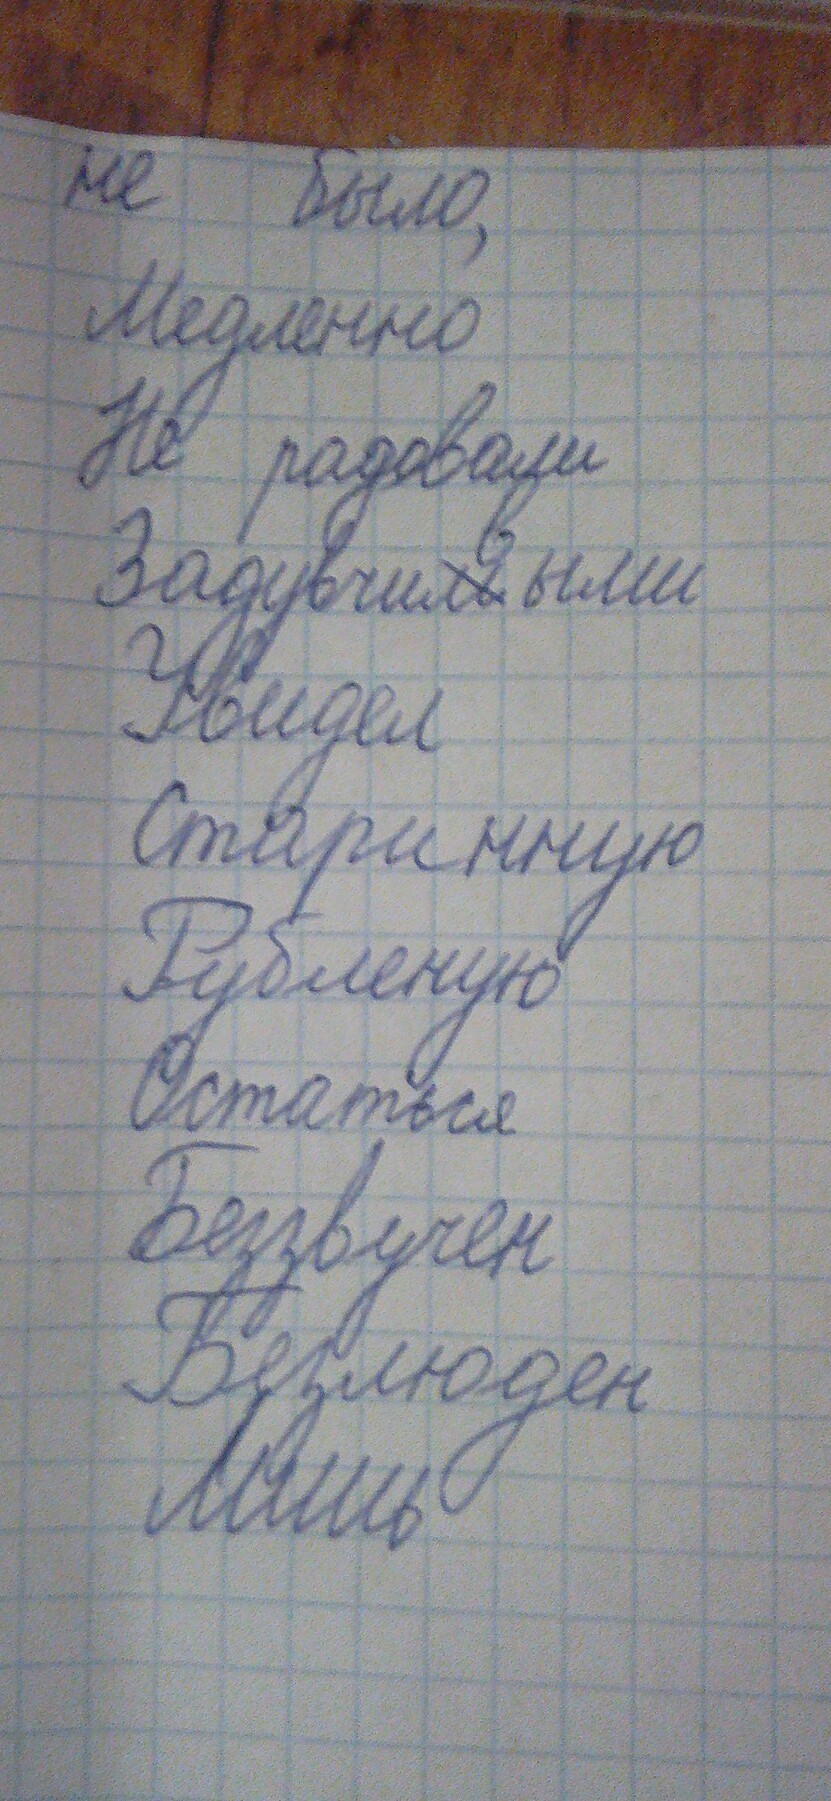 не было,
Медленно
Не радовали
Увидел
Старинную
Рубленую
Остаться
Беззвучен
Безлюден
Лишь